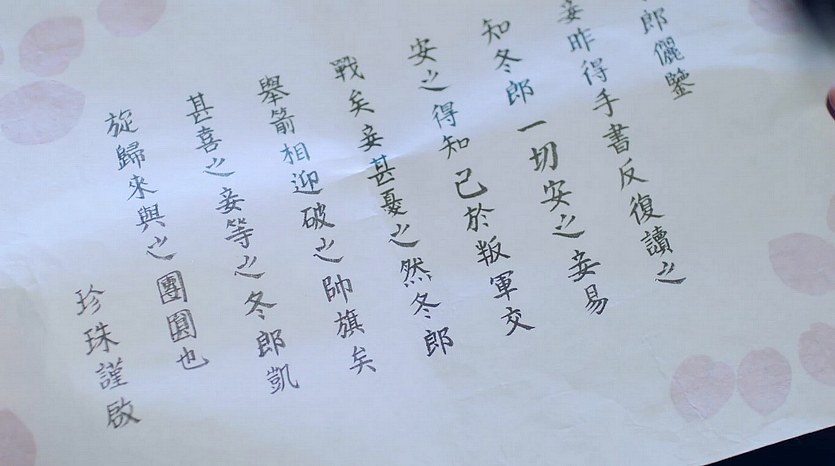 郎儷鑒
妾昨得手書反復讀之
知冬郎一切安之妾易
安之得知己於叛軍交
戰矣妾甚憂之然冬郎
舉箭相迎破之帥旗矣
甚喜之妾等之冬郎凱
旋歸來與之團圓也
珍珠謹啟